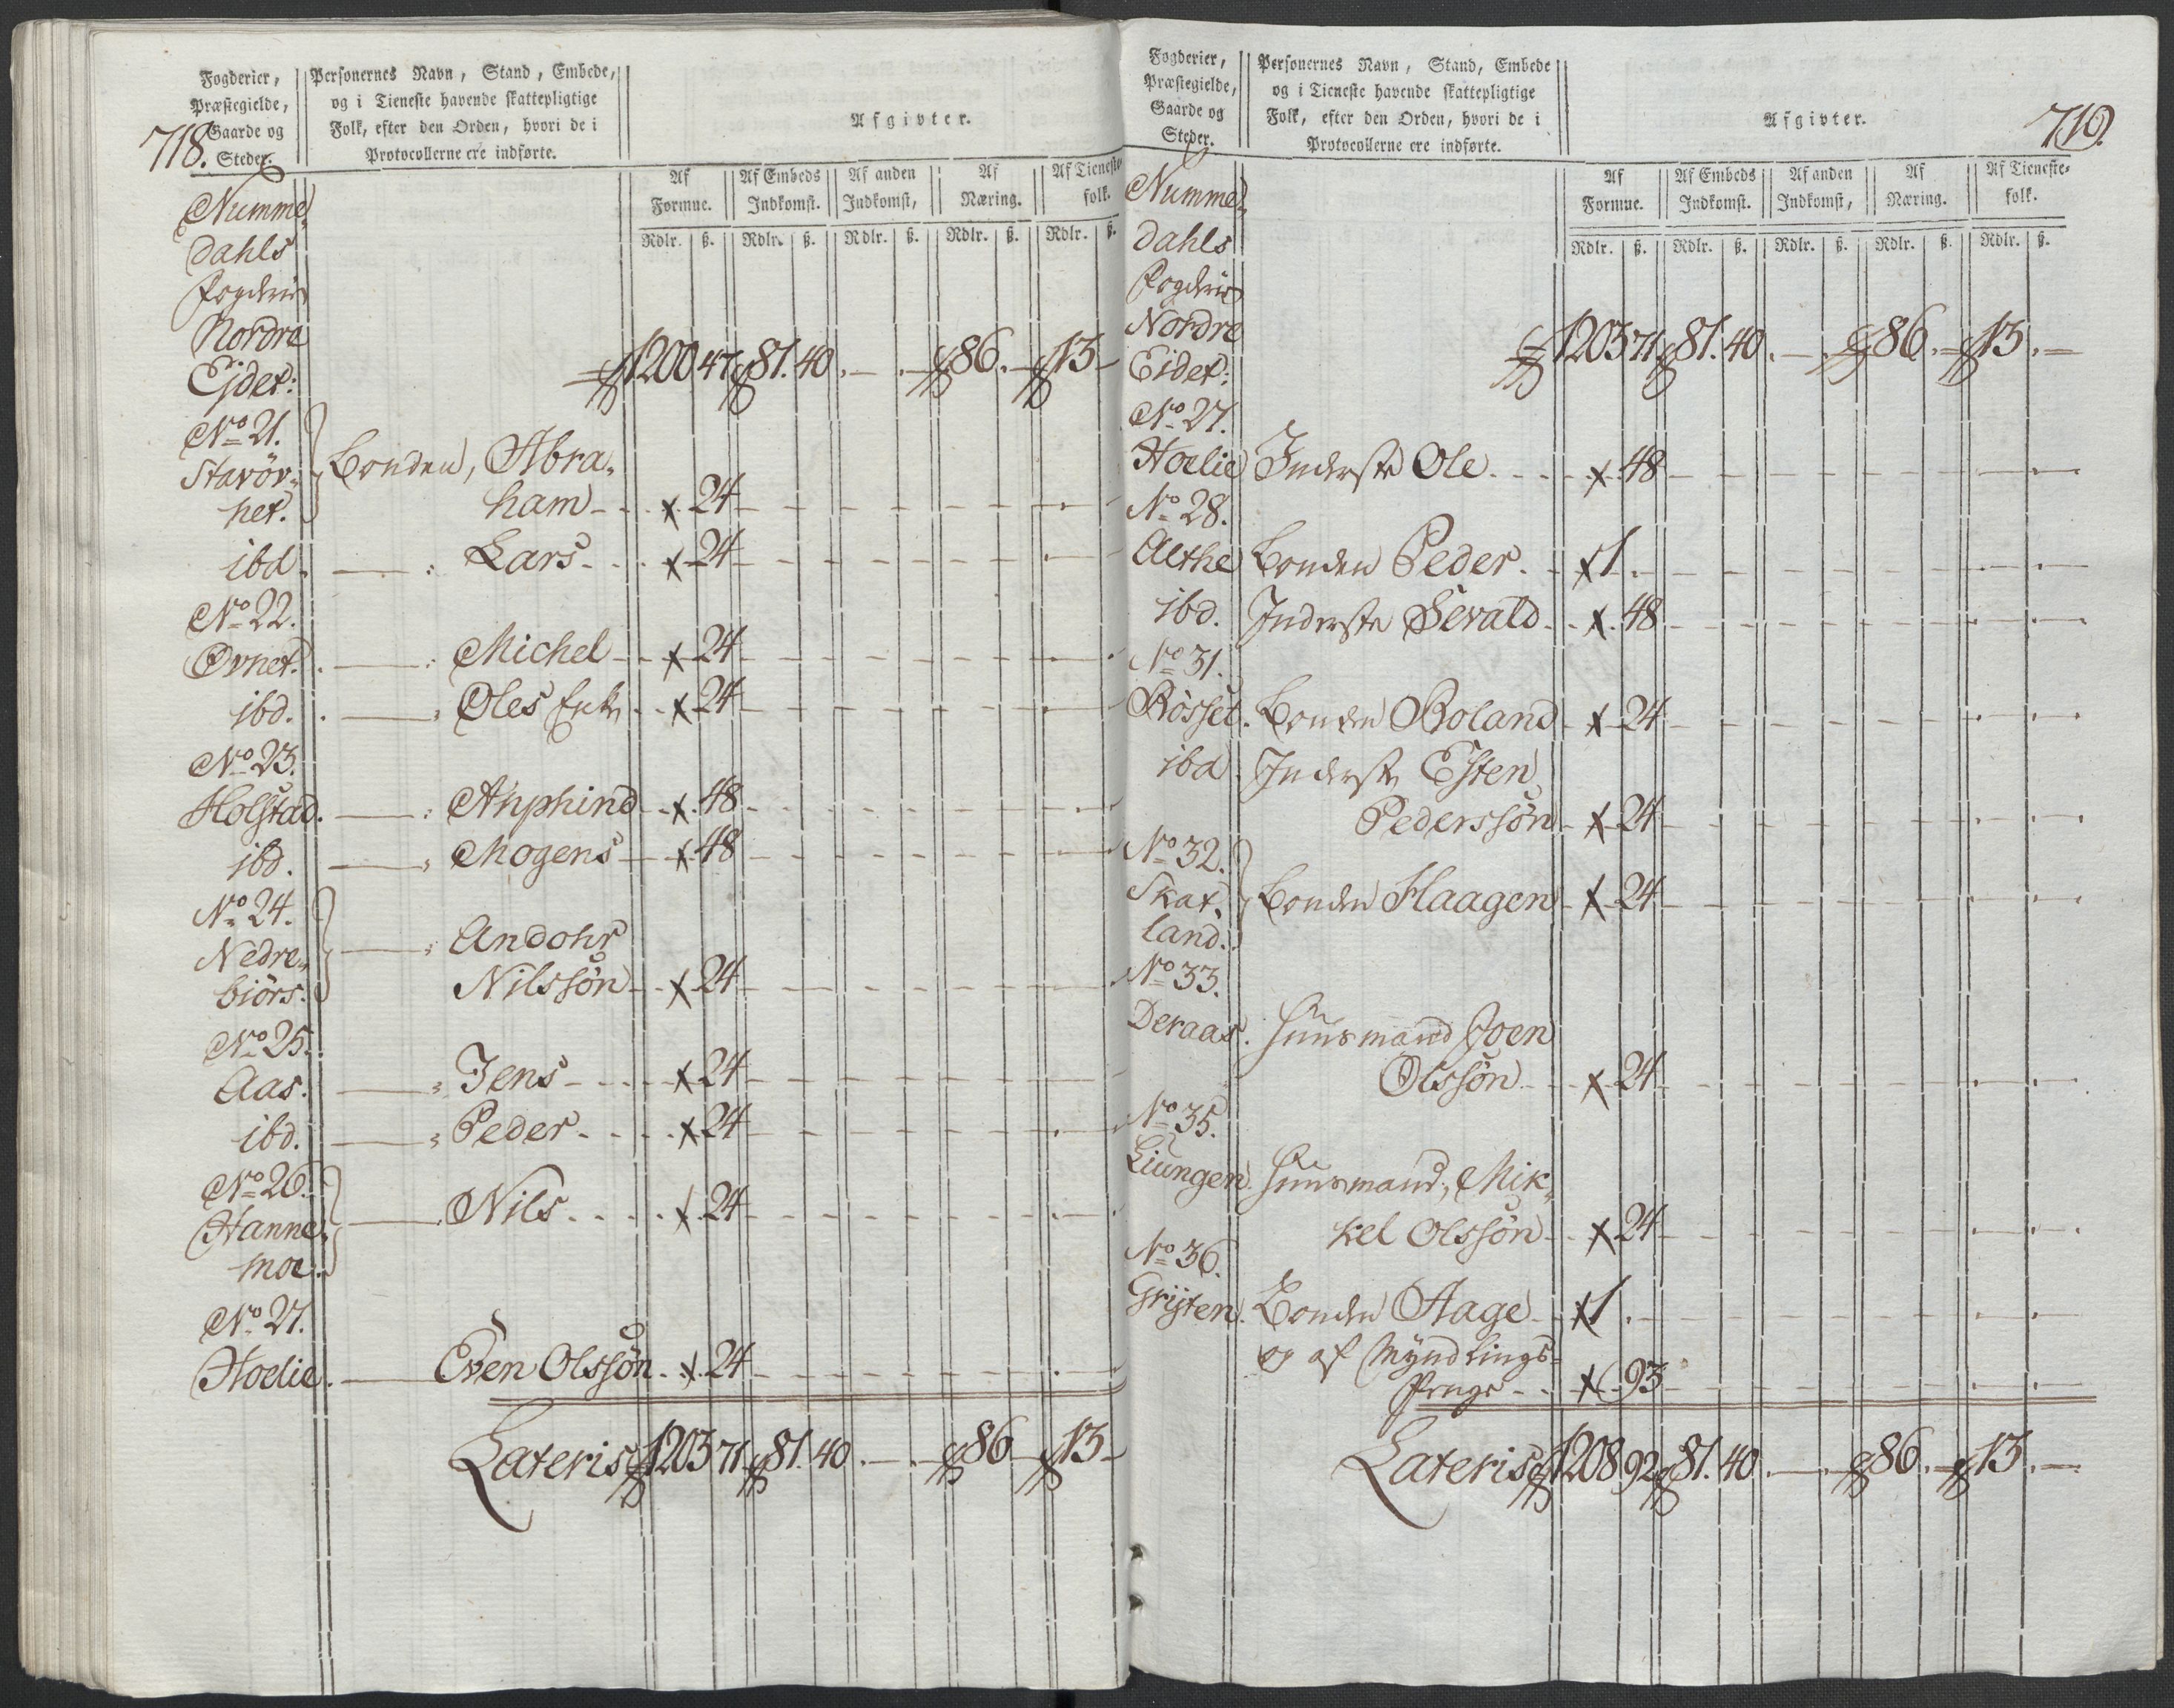 718.
Fogderier, Præstegielde, Gaarde og Steder.
Personernes Navn, Stand, Embede,
og i Tieneste havende skattepligtige
Folk, efter den Orden, hvori de i
Protocollerne ere indførte.
Afgivter.
Af Formue. Af Embeds Indkomst. Af anden Indkomst, Af Næring. Af Tieneste folk.
Rdlr. ß. Rdlr. ß. Rdlr. ß. Rdlr. ß. Rdlr. ß.
Numme-
dahls
Fogderie
Nordre
Ejdet: 1200 47 81. 40. — . — 86. — 13 —
No 21.
Starör- Bonden, Abra-
het. ham - - x 24
ibd. — : Lars - - x 24
No 22.
Ovnet. — : Michel - x 24
ibd. — : Oles Enke - x 24
No 23.
Holstad. — : Anphind - x 48
ibd. — : Mogens - x 48
No 24.
Nedre- — : Andohr
biörs. Nilssön - x 24
No 25.
Aas. — : Jens - - x 24
ibd. — : Peder - - x 24
No 26.
Hanne- — Nils - - x 24
moe.
No 27.
Hoelie. — Even Olssön - x 24
Lateris 1203 71 81. 40. — . — 86 — 13 —
719.
Fogderier, Præstegielde, Gaarde og Steder.
Personernes Navn, Stand, Embede
og i Tieneste havende skattepligtige
Folk, efter den Orden, hvori de i
Protocollerne ere indførte.
Afgivter.
Af Formue. Af Embeds Indkomst. Af anden Indkomst, Af Næring. Af Tieneste- folk.
Rdlr. ß. Rdlr. ß. Rdlr. ß. Rdlr. ß. Rdlr. ß.
Numme-
dahls
Fogderie
Nordre
Eidet: 1203 71 81. 40. — . 86. — 13. —
No 27.
Hoelie Inderste Ole - - x 48
No 28.
Aethe Bonden Peder. - x 1.
ibd. Inderste Sevald - x 48
No 31.
Rösset. Bonden Roland - x 24
ibd. Inderste Esten
Pederssön - x 24
No 32.
Skat- Bonden Haagen - x 24
land.
No 33.
Deraas. Huusmand Joen
Olssön - x 24
No 35.
Liungen. Huusmand, Mik-
kel Olssön - x 24
No 36.
Grÿten. Bonden Aage - x 1.
og af Myndlings-
Penge - - x 93
Lateris 1208 92 81. 40. — . 86. — 13. —